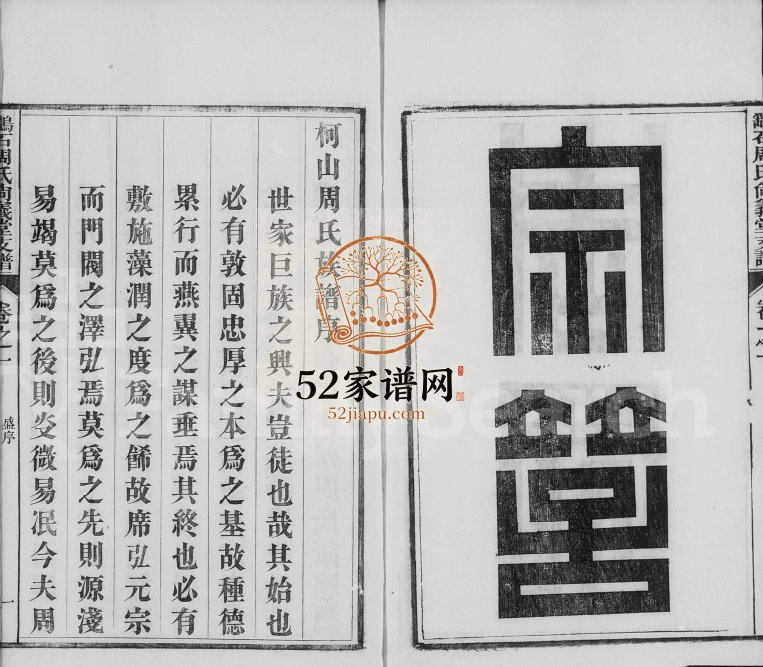 石周氏尚義堂支譜
卷之一
宗
柯山周氏族譜序
世家巨族之興夫豈徒也哉其始也
必有敦固忠厚之本爲之基故種德
累行而燕翼之謀垂焉其終也必有
敷施藻潤之度爲之餙故席弘元宗
而門閥之澤弘焉莫爲之先則源淺
易竭莫爲之後則微易泯今夫周
石周氏尚義堂支譜
卷之一
盛序
一
52家谱网
52jiapu.com